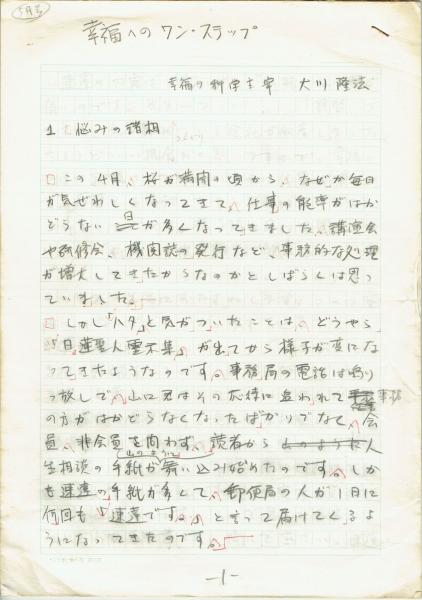 5月号
幸福へのワン・ステップ
幸福の科学主宰 大川隆法
1 悩みの諸相
この4月、桜が満開の頃から、なぜか毎日
が気ぜわしくなってきて、仕事の能率がはか
どらない日が多くなってきました。講演会
や研修会、機関誌の発行など、事務的な処理
が増大してきたからなのかとしばらくは思っ
ていました。
しかし「ハタ」と気がついたことは、どうやら
「日蓮聖人霊示集」が出てから様子が変にな
ってきたようなのです。事務局の電話は鳴り
っ放しで、山に君はその応待に追われて事務
の方がはかどらなくなったばかりでなく、会
員、非会員を問わず、読者から山のように人
生相談の手紙が舞い込み始めたのです。しか
も速達の手紙が多くて、郵便局の人が1日に
何回も「速達です。」と言って届けてくるよ
うになってきたのです。
-1-